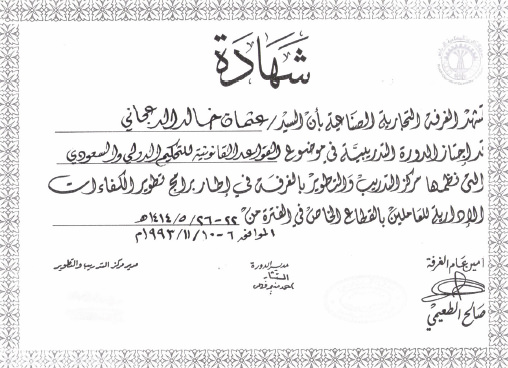 شهادة
تشهد الغرفة التجارية الصناعية بأن السيد/ عثمان خالد الدعجاني
قد اجتاز الدورة التدريبية في موضوع القواعد القانونية للتحكيم الدولي والسعودي
التي نظمها مركز التدريب والتطوير بالغرفة في إطار برامج تطوير الكفاءات
الإدارية للعاملين بالقطاع الخاص في الفترة من ٢٢-٢٦/٥/١٤١٤هـ
الموافق ٦-١٠/١١/١٩٩٣م
امين عام الغرفة
صالح الطعيمي
مدير الدورة
أحمد منير
مدير مركز التدريب والتطوير